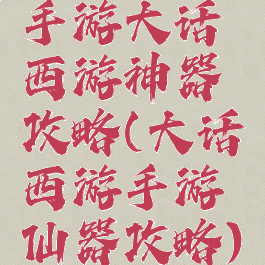 手游大话
西游神器
攻略(大话
西游手游
仙器攻略)